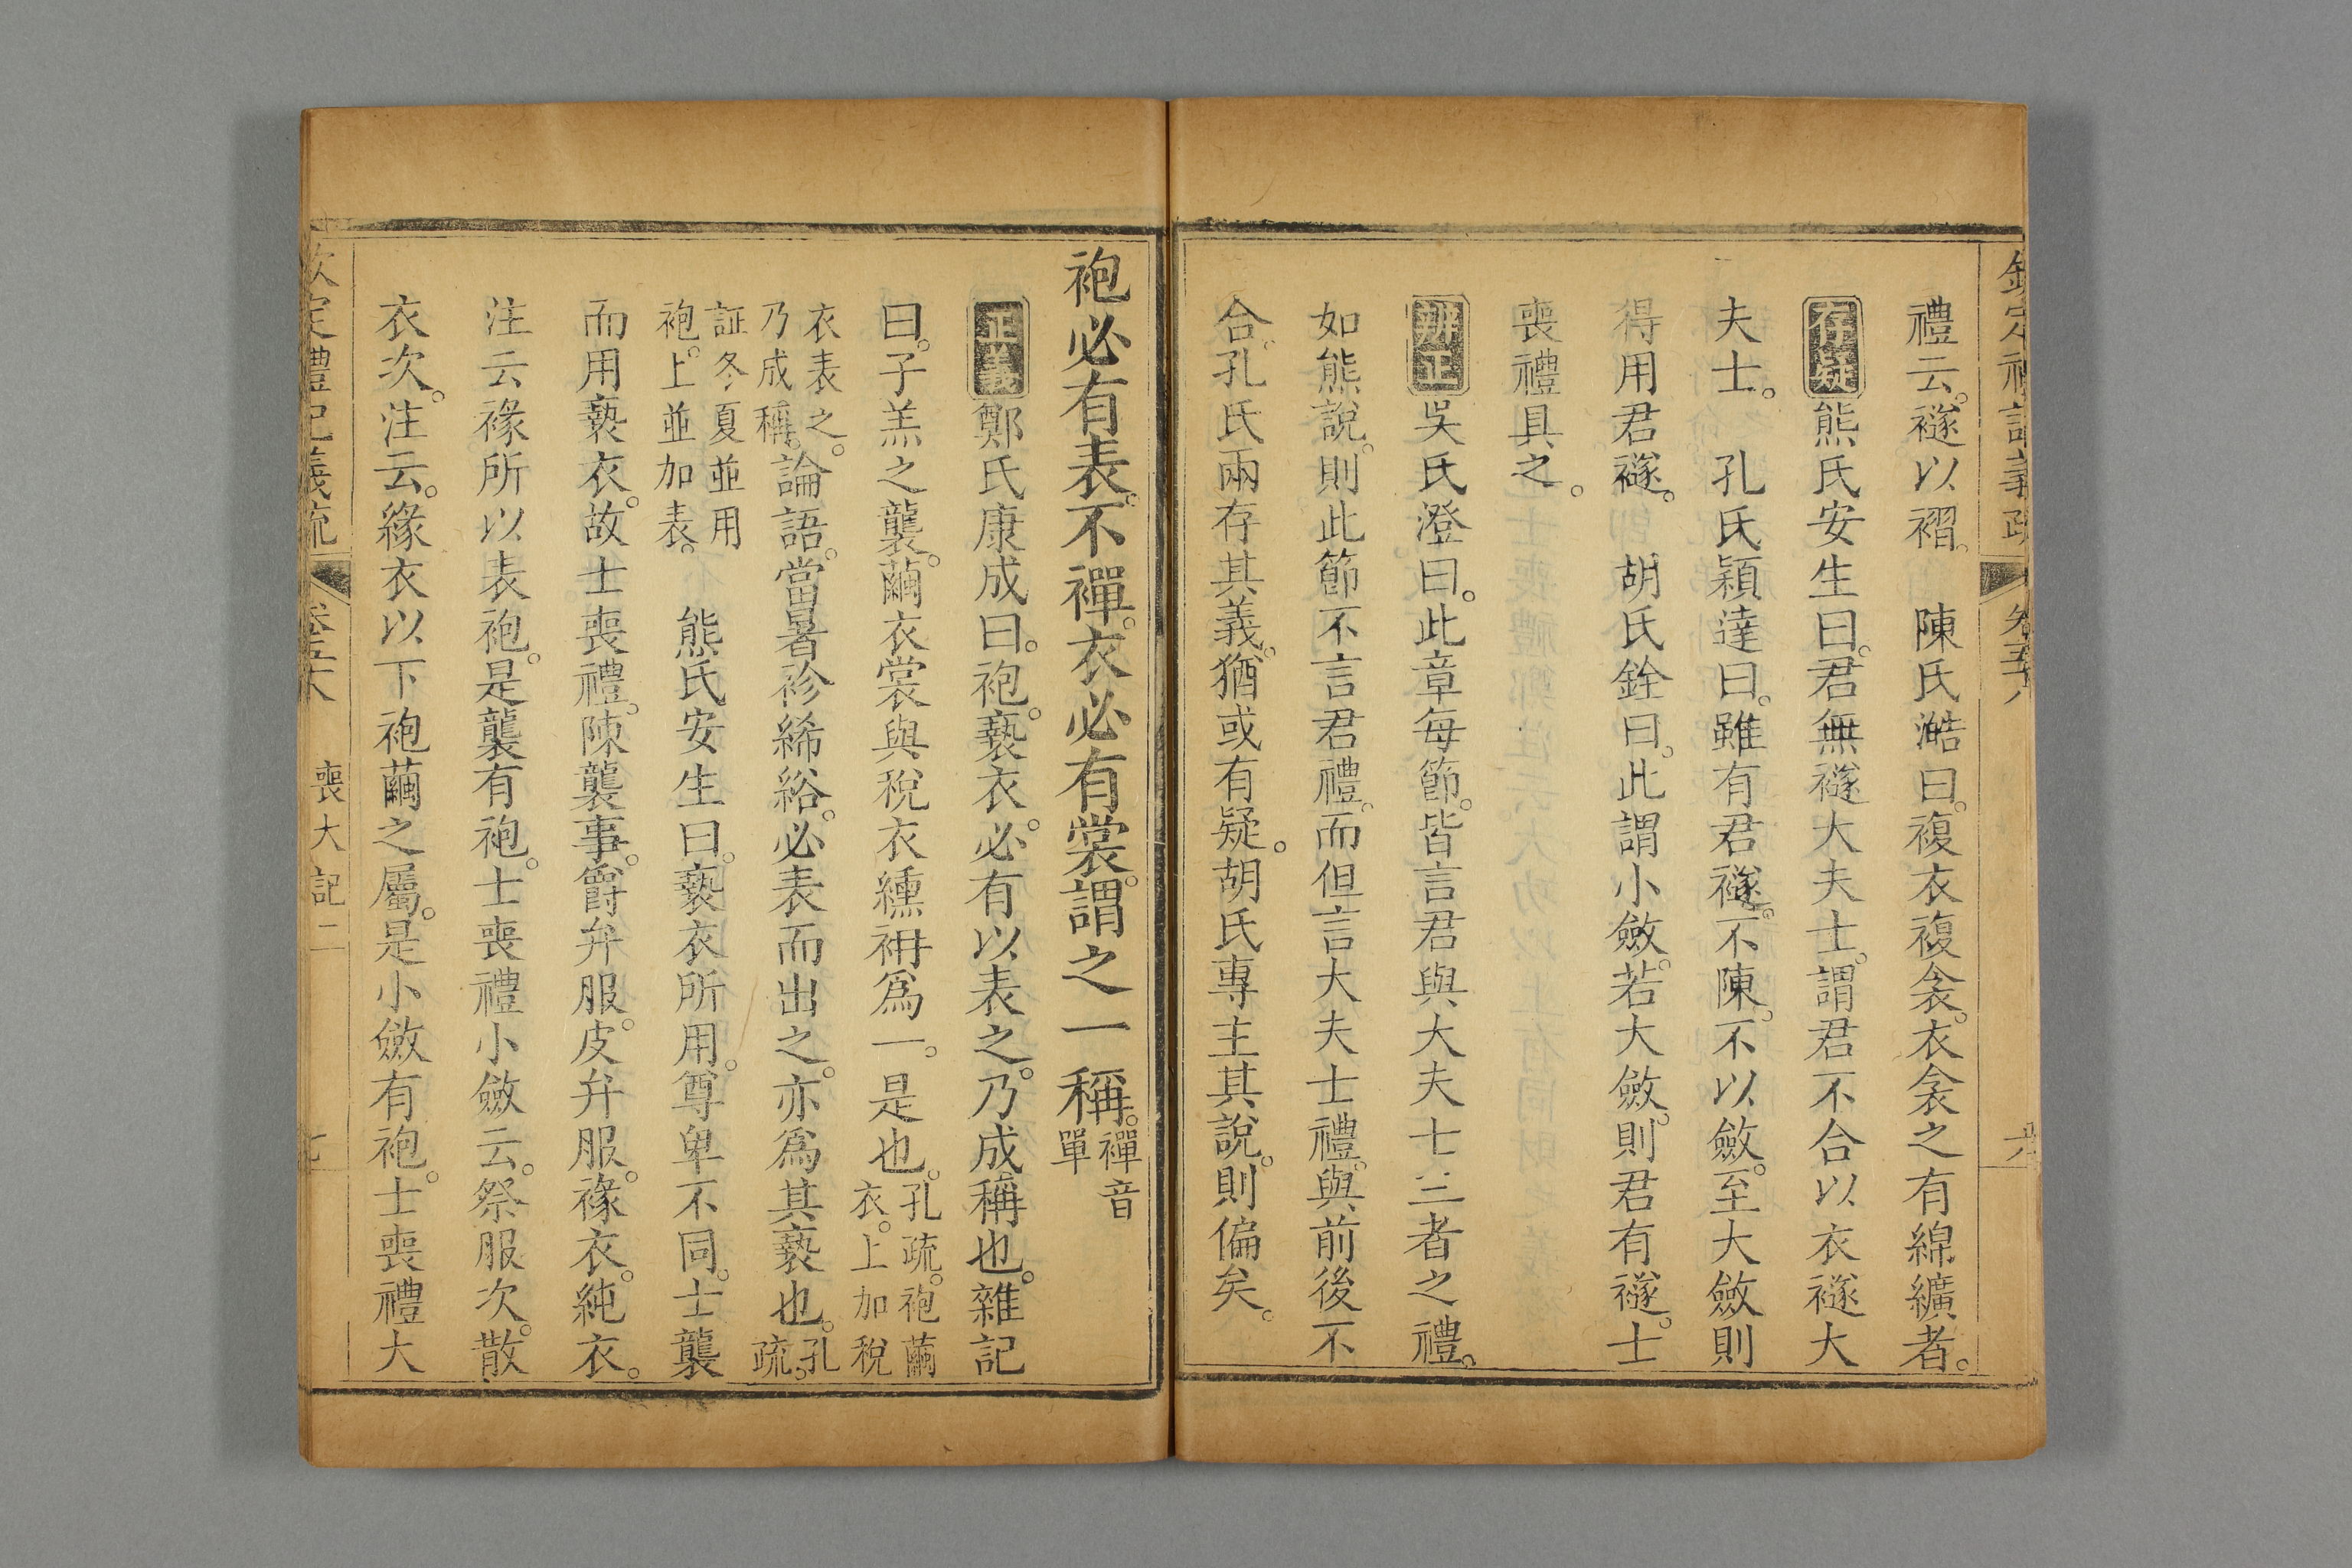 欽定禮記義疏 卷五十八 六
禮云。襚以褶。 陳氏澔曰。複衣複衾。衣衾之有綿纊者。
存疑 熊氏安生曰。君無襚大夫士。謂君不合以衣襚大
夫士。 孔氏穎達曰。雖有君襚。不陳。不以斂。至大斂則
得用君襚。 胡氏銓曰。此謂小斂。若大斂。則君有襚。士
喪禮具之。
辨正 吳氏澄曰。此章每節。皆言君與大夫士三者之禮。
如熊說。則此節不言君禮。而但言大夫士禮。與前後不
合。孔氏兩存其義。猶或有疑。胡氏專主其說。則偏矣。
袍必有表。不襌。衣必有裳。謂之一稱。襌音單
正義 鄭氏康成曰。袍。褻衣。必有以表之。乃成稱也。雜記
曰。子羔之襲。繭衣裳與稅衣纁袡爲一。是也。孔疏。袍繭衣。上加稅
衣表之。乃成稱。論語。當暑袗絺綌。必表而出之。亦爲其褻也。孔疏。
証冬夏並用袍。上並加表。 熊氏安生曰。褻衣所用。尊卑不同。士襲
而用褻衣。故士喪禮。陳襲事。爵弁服。皮弁服。褖衣。純衣。
注云褖所以表袍。是襲有袍。士喪禮小斂云。祭服次。散
衣次。注云。緣衣以下袍繭之屬。是小斂有袍。士喪禮大
欽定禮記義疏 卷五十八 喪大記二 七